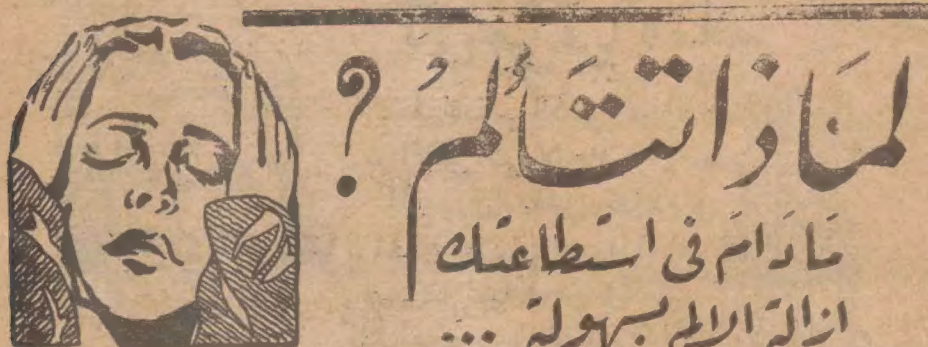 لماذا تتألم ?
ما دام فى استطاعتك
ازالة الالم بسهولة ...